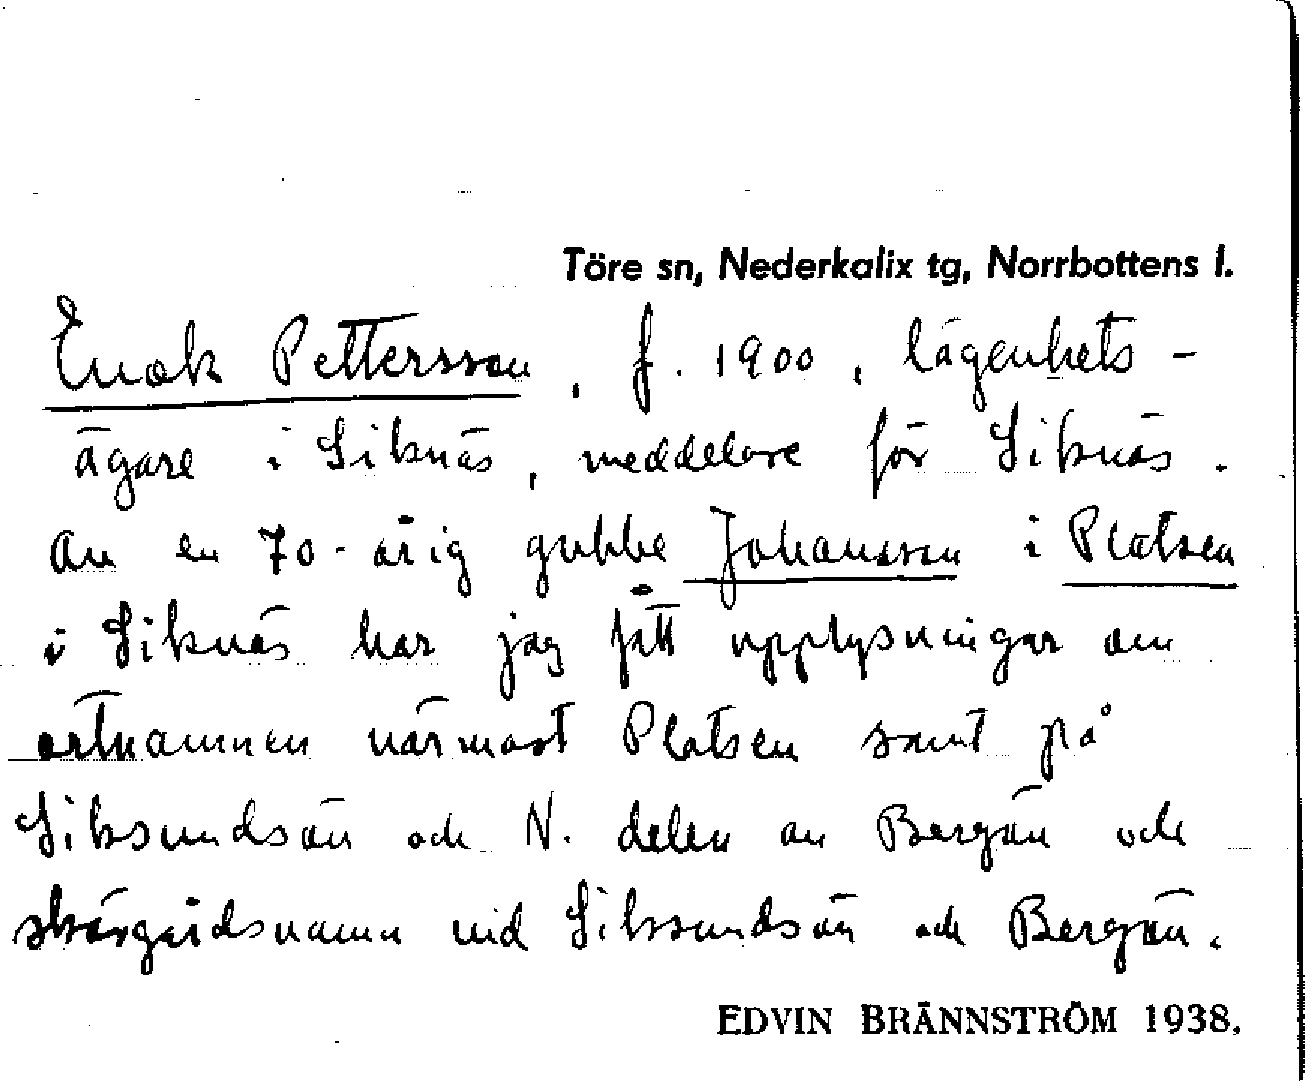 Töre sn, Nederkalix tg, Norrbottens l.
Enok Pettersson, f. 1900, lägenhets-
ägare i Siknäs, meddelare för Siknäs.
Av en 70-årig gubbe Johansson i Platsen
i Siknäs har jag fått upplysningar om
ortnamnen närmast Platsen samt på
Siksundsön och N. delen av Bergön och
skärgårdsnamn vid Siksundsön och Bergön.
EDVIN BRÄNNSTRÖM 1938.